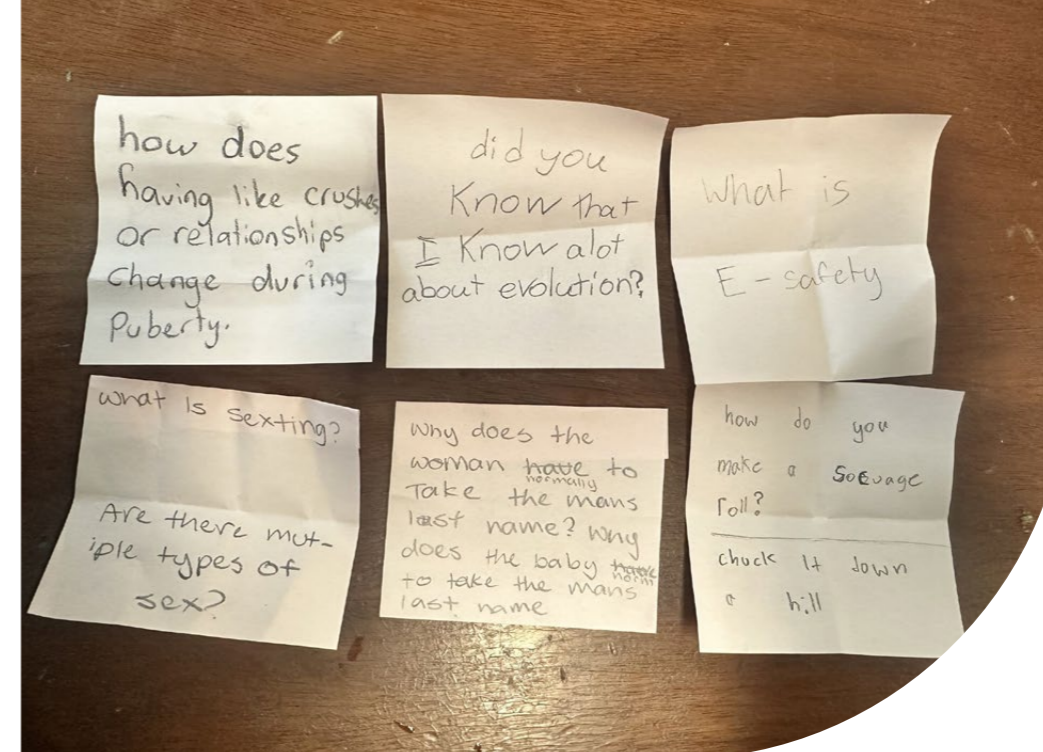 how does
having like crushes
or relationships
change during
Puberty.
did you
Know that
I Know alot
about evolution?
What is
E-safety
what Is sexting?
Are there mut-
iple types of
sex?
Why does the
woman have to
normally
Take the mans
last name? Why
does the baby have
norm
to take the mans
last name
how do you
make a soevage
roll?
chuck It down
a hill